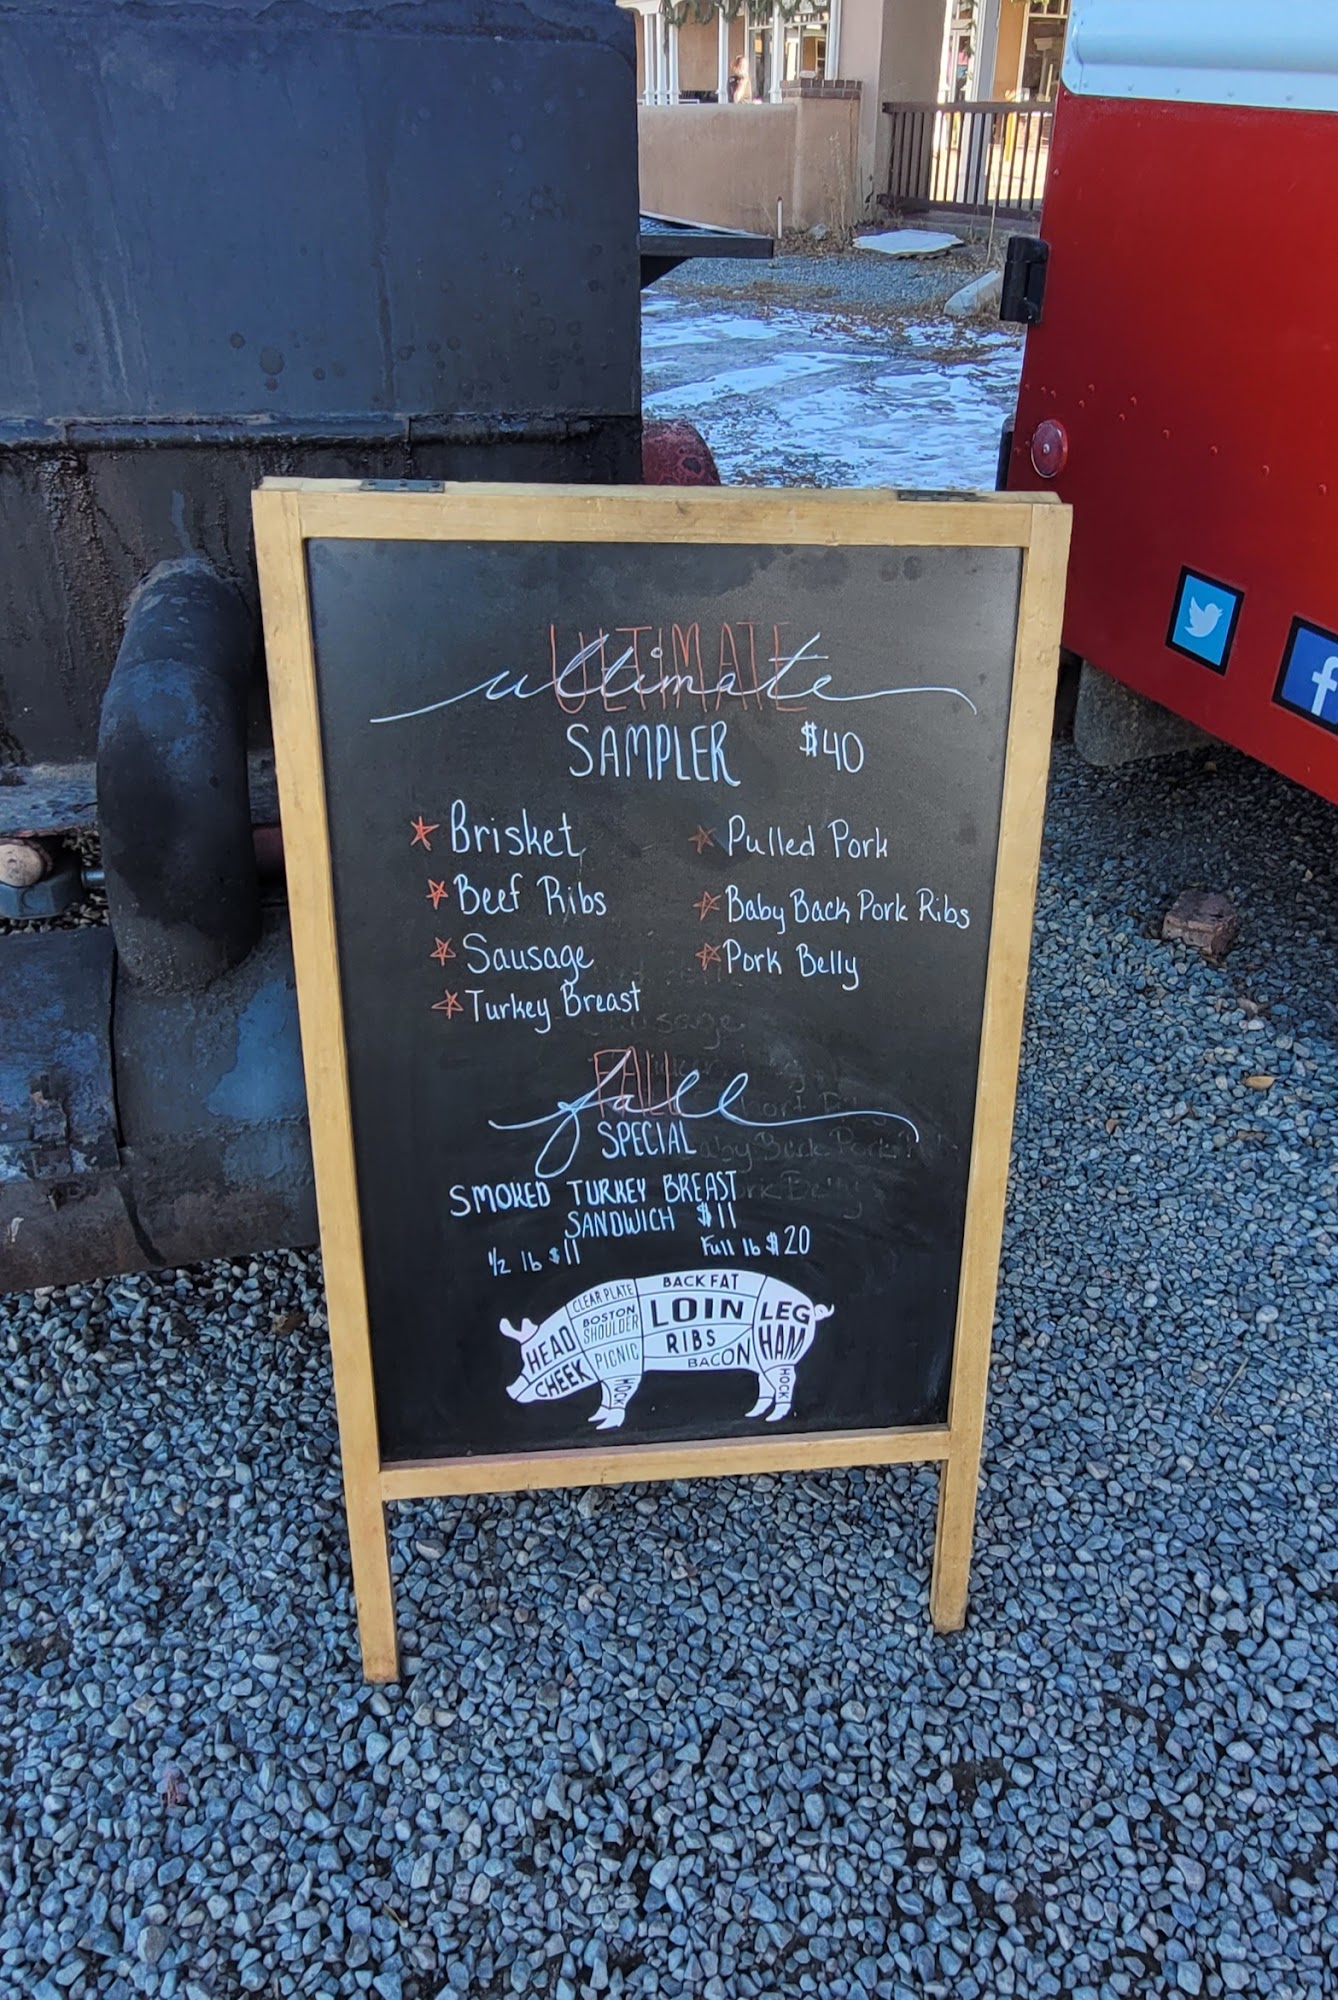 ULTIMATE
ultimate
SAMPLER $40
Brisket
Beef Ribs
Sausage
Turkey Breast
Pulled Pork
Baby Back Pork Ribs
Pork Belly
FALL
fall
SPECIAL
SMOKED TURKEY BREAST
SANDWICH $11
1/2 lb $11 Full lb $20
sausage
Baby Back Pork
CLEAR PLATE
BACK FAT
HEAD
CHEEK
BOSTON
SHOULDER
PICNIC
HOCK
LOIN
RIBS
BACON
LEG
HAM
HOCK
f